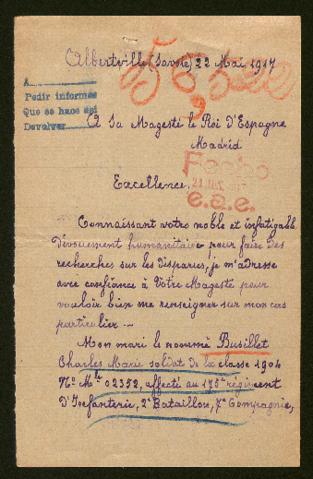 Albertville (Savoie) 22 Mai 1917
A
Pedir informes
Que se hace así
Devolver
A Sa Magesté le Roi d'Espagne
Madrid
Fecho
e.a.e.
Excellence,
Connaissant votre noble et infatigable
dévouement humanitaire pour faire des
recherches sur les disparus, je m'adresse
avec confiance à Votre Magesté pour
vouloir bien me renseigner sur mon cas
particulier :-
Mon mari le nommé Busillet
Charles Marie soldat de la classe 1904
No Mle 02352, affecté au 175e régiment
d'Infanterie, 2e Bataillon, 7e Compagnie,